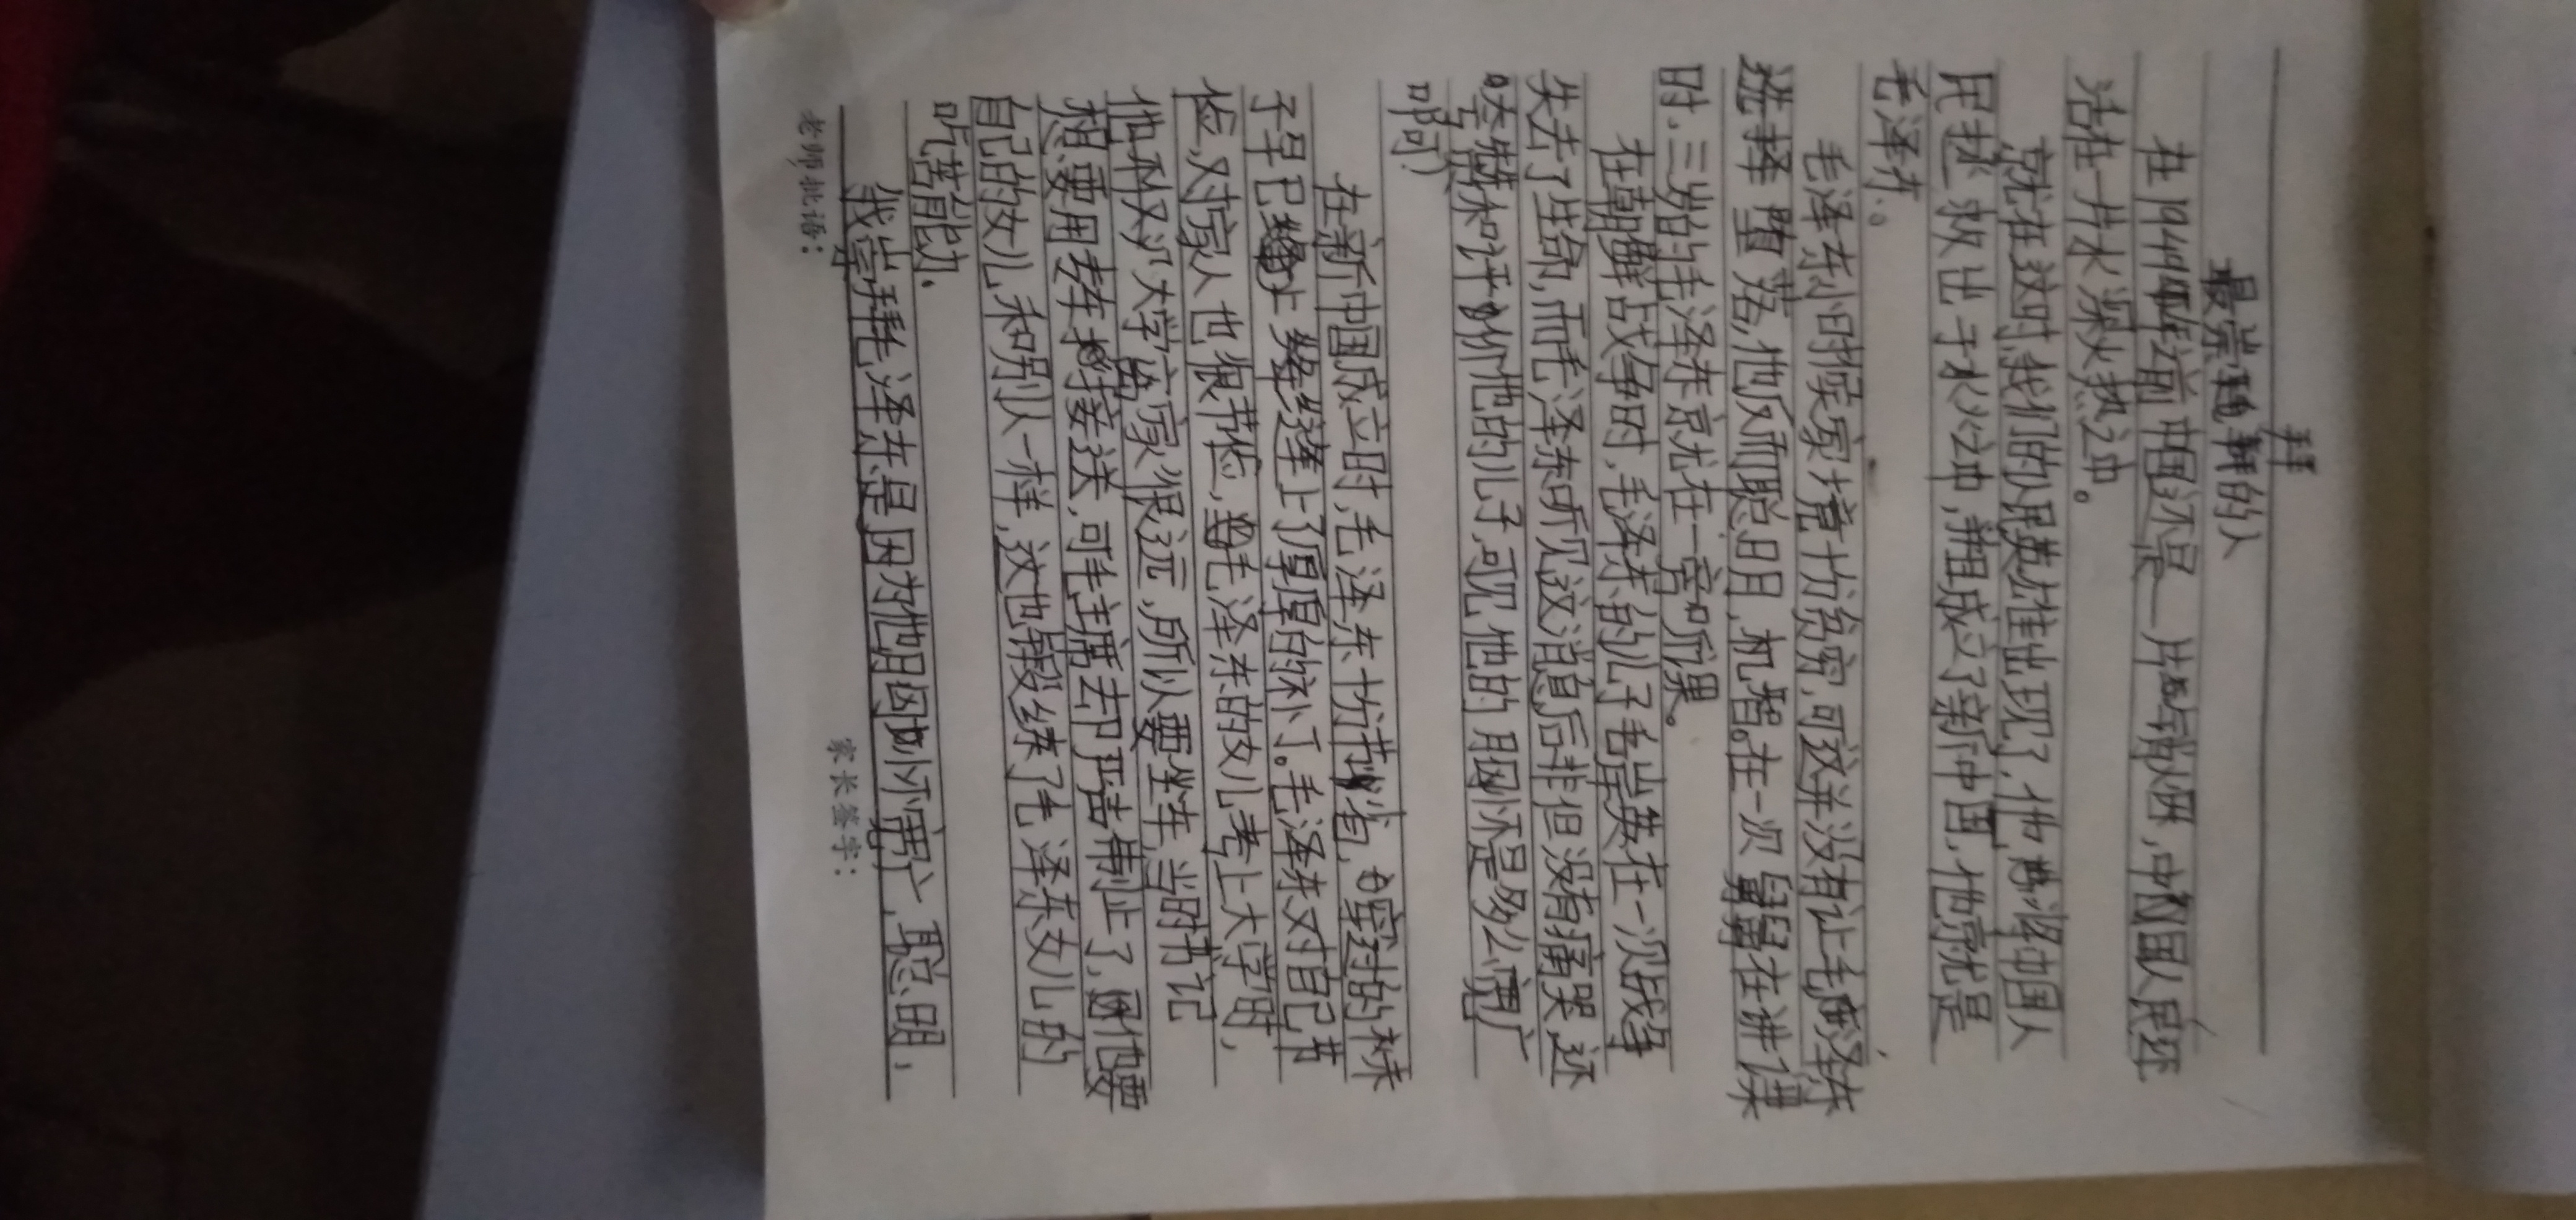 拜
最崇拜的人
在1949年之前中国还是一片硝烟,中国人民还
活在一片水深火热之中。
就在这时,我们的人民英雄出现了,他将中国人
民拯救出于水火之中,并组成了新中国,他就是
毛泽东。
毛泽东小时候家境十分贫穷,可这并没有让毛泽东
选择堕落,他反而聪明,机智。在一次舅舅在讲课
时,三岁的毛泽东就在一旁听课。
在朝鲜战争时,毛泽东的儿子毛岸英在一次战争
失去了生命,而毛泽东听见这消息后非但没有痛哭还
夸赞和评价他的儿子,可见,他的胸怀是多么宽广
啊!
在新中国成立时,毛泽东十分节省,穿的袜
子早已缝上了厚厚的补丁。毛泽东对自己节
俭,对家人也很节俭,当毛泽东的女儿考上大学时,
他不仅没大学离家很远,所以要坐车,当时书记
想要用专车接送,可毛主席去却严格制止了,他要
自己的女儿和别人一样,这也锻练了毛泽东女儿的
吃苦能力.
我崇拜毛泽东是因为他胸怀宽广,聪明,
老师批语: 家长签字: